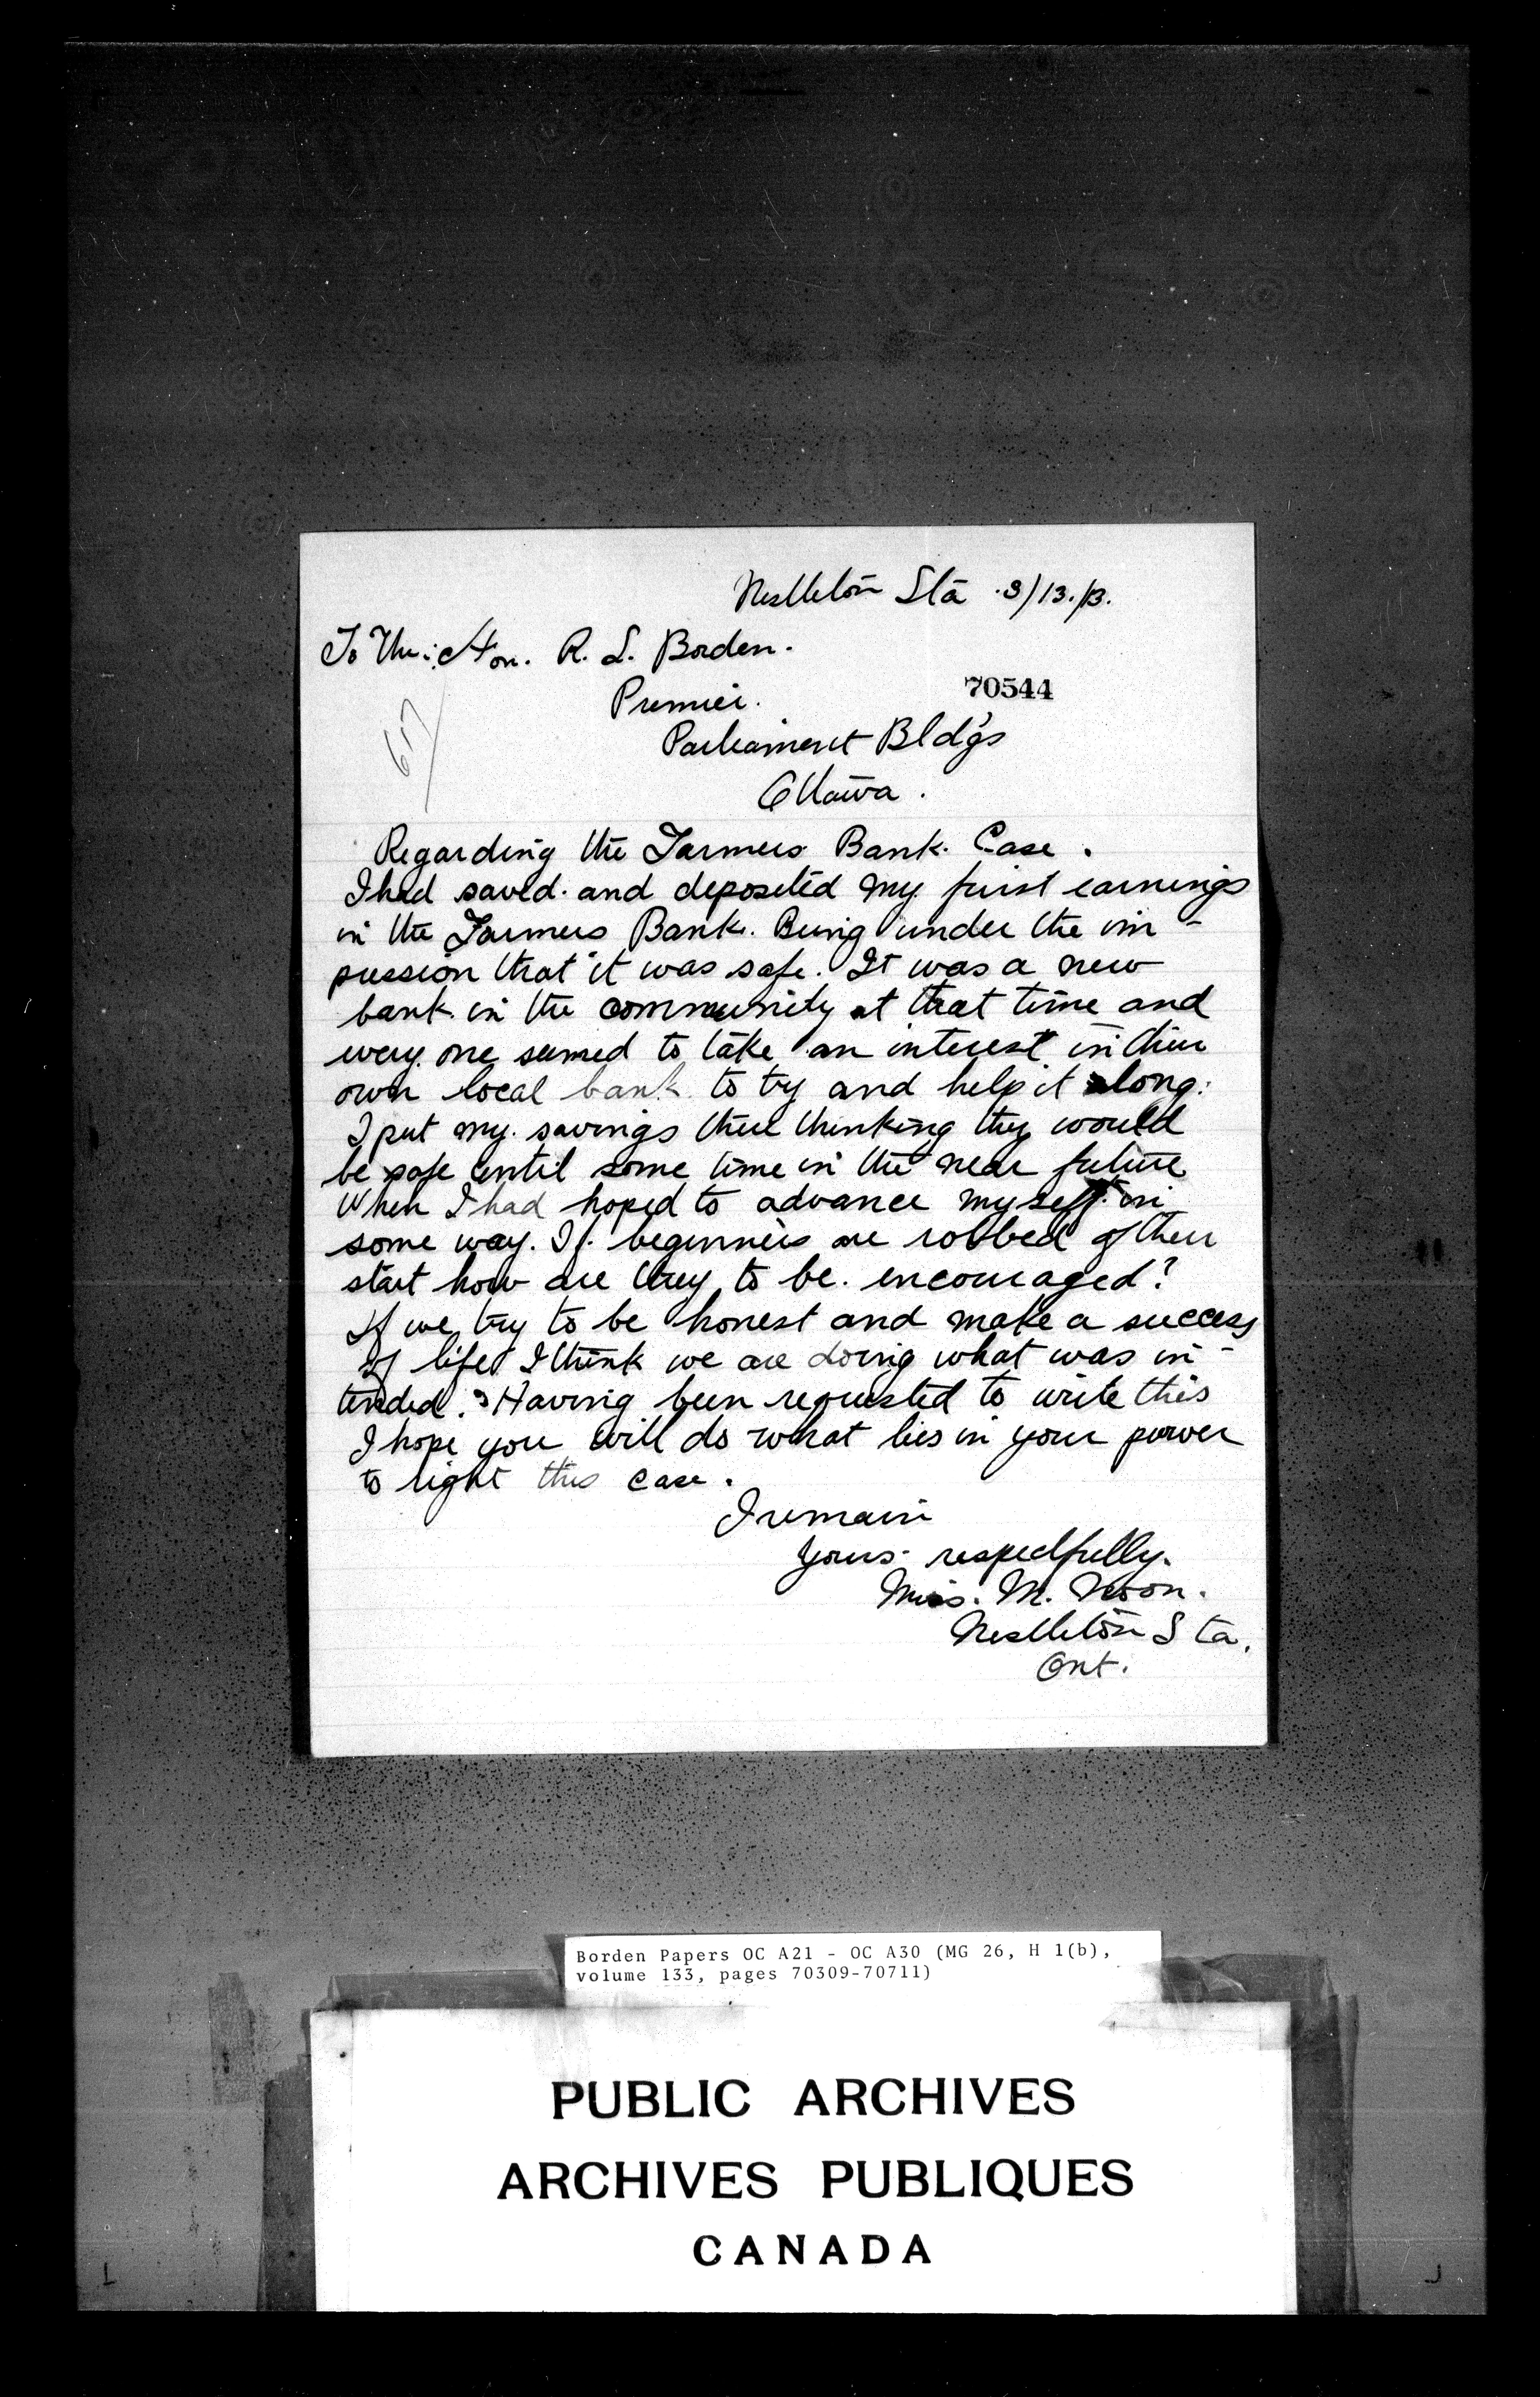 Nestleton Sta 3/13/13.
To The Hon. R. L. Borden.
Premier.
70544
Parliament Bld'gs
Ottawa.
Regarding the Farmers Bank Case.
I had saved and deposited my first earnings
in the Farmers Bank. Being under the im-
pression that it was safe. It was a new
bank in the community at that time and
every one seemed to take an interest in their
own local bank to try and help it along.
I put my savings there thinking they would
be safe until some time in the near future
When I had hoped to advance myself in
some way. If beginners are robbed of their
start how are they to be encouraged?
If we try to be honest and make a success
of life I think we are doing what was in-
tended. Having been requested to write this
I hope you will do what lies in your power
to right this case.
I remain
Yours respectfully.
Miss. M. Nixon.
Nestleton Sta.
Ont.
Borden Papers OC A21 - OC A30 (MG 26, H 1(b),
volume 133, pages 70309-70711)
PUBLIC ARCHIVES
ARCHIVES PUBLIQUES
CANADA